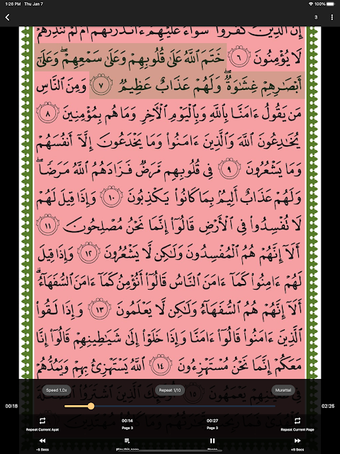 1:28 PM Thu Jan 7
100%
3
إِنَّ الَّذِينَ كَفَرُوا سَوَاءٌ عَلَيْهِمْ ءَأَنذَرْتَهُمْ أَمْ لَمْ تُنذِرْهُمْ
لَا يُؤْمِنُونَ ٦ خَتَمَ اللَّهُ عَلَىٰ قُلُوبِهِمْ وَعَلَىٰ سَمْعِهِمْ ۖ وَعَلَىٰ
أَبْصَارِهِمْ غِشَاوَةٌ ۖ وَلَهُمْ عَذَابٌ عَظِيمٌ ٧ وَمِنَ النَّاسِ
مَن يَقُولُ ءَامَنَّا بِاللَّهِ وَبِالْيَوْمِ الْآخِرِ وَمَا هُم بِمُؤْمِنِينَ ٨
يُخَادِعُونَ اللَّهَ وَالَّذِينَ ءَامَنُوا وَمَا يَخْدَعُونَ إِلَّا أَنفُسَهُمْ
وَمَا يَشْعُرُونَ ٩ فِي قُلُوبِهِم مَّرَضٌ فَزَادَهُمُ اللَّهُ مَرَضًا ۖ
وَلَهُمْ عَذَابٌ أَلِيمٌ بِمَا كَانُوا يَكْذِبُونَ ١٠ وَإِذَا قِيلَ لَهُمْ
لَا تُفْسِدُوا فِي الْأَرْضِ قَالُوا إِنَّمَا نَحْنُ مُصْلِحُونَ ١١
أَلَا إِنَّهُمْ هُمُ الْمُفْسِدُونَ وَلَٰكِن لَّا يَشْعُرُونَ ١٢ وَإِذَا قِيلَ
لَهُمْ ءَامِنُوا كَمَا ءَامَنَ النَّاسُ قَالُوا أَنُؤْمِنُ كَمَا ءَامَنَ السُّفَهَاءُ ۗ
أَلَا إِنَّهُمْ هُمُ السُّفَهَاءُ وَلَٰكِن لَّا يَعْلَمُونَ ١٣ وَإِذَا لَقُوا
الَّذِينَ ءَامَنُوا قَالُوا ءَامَنَّا وَإِذَا خَلَوْا إِلَىٰ شَيَاطِينِهِمْ قَالُوا إِنَّا
مَعَكُمْ إِنَّمَا نَحْنُ مُسْتَهْزِءُونَ ١٤ اللَّهُ يَسْتَهْزِئُ بِهِمْ وَيَمُدُّهُمْ
Speed 1.0x
Repeat 1/10
Murattal
00:18
02:25
00:14
00:27
Repeat Current Ayat
Page 3
Page 3
Repeat Current Page
-5 Secs
+5 Secs